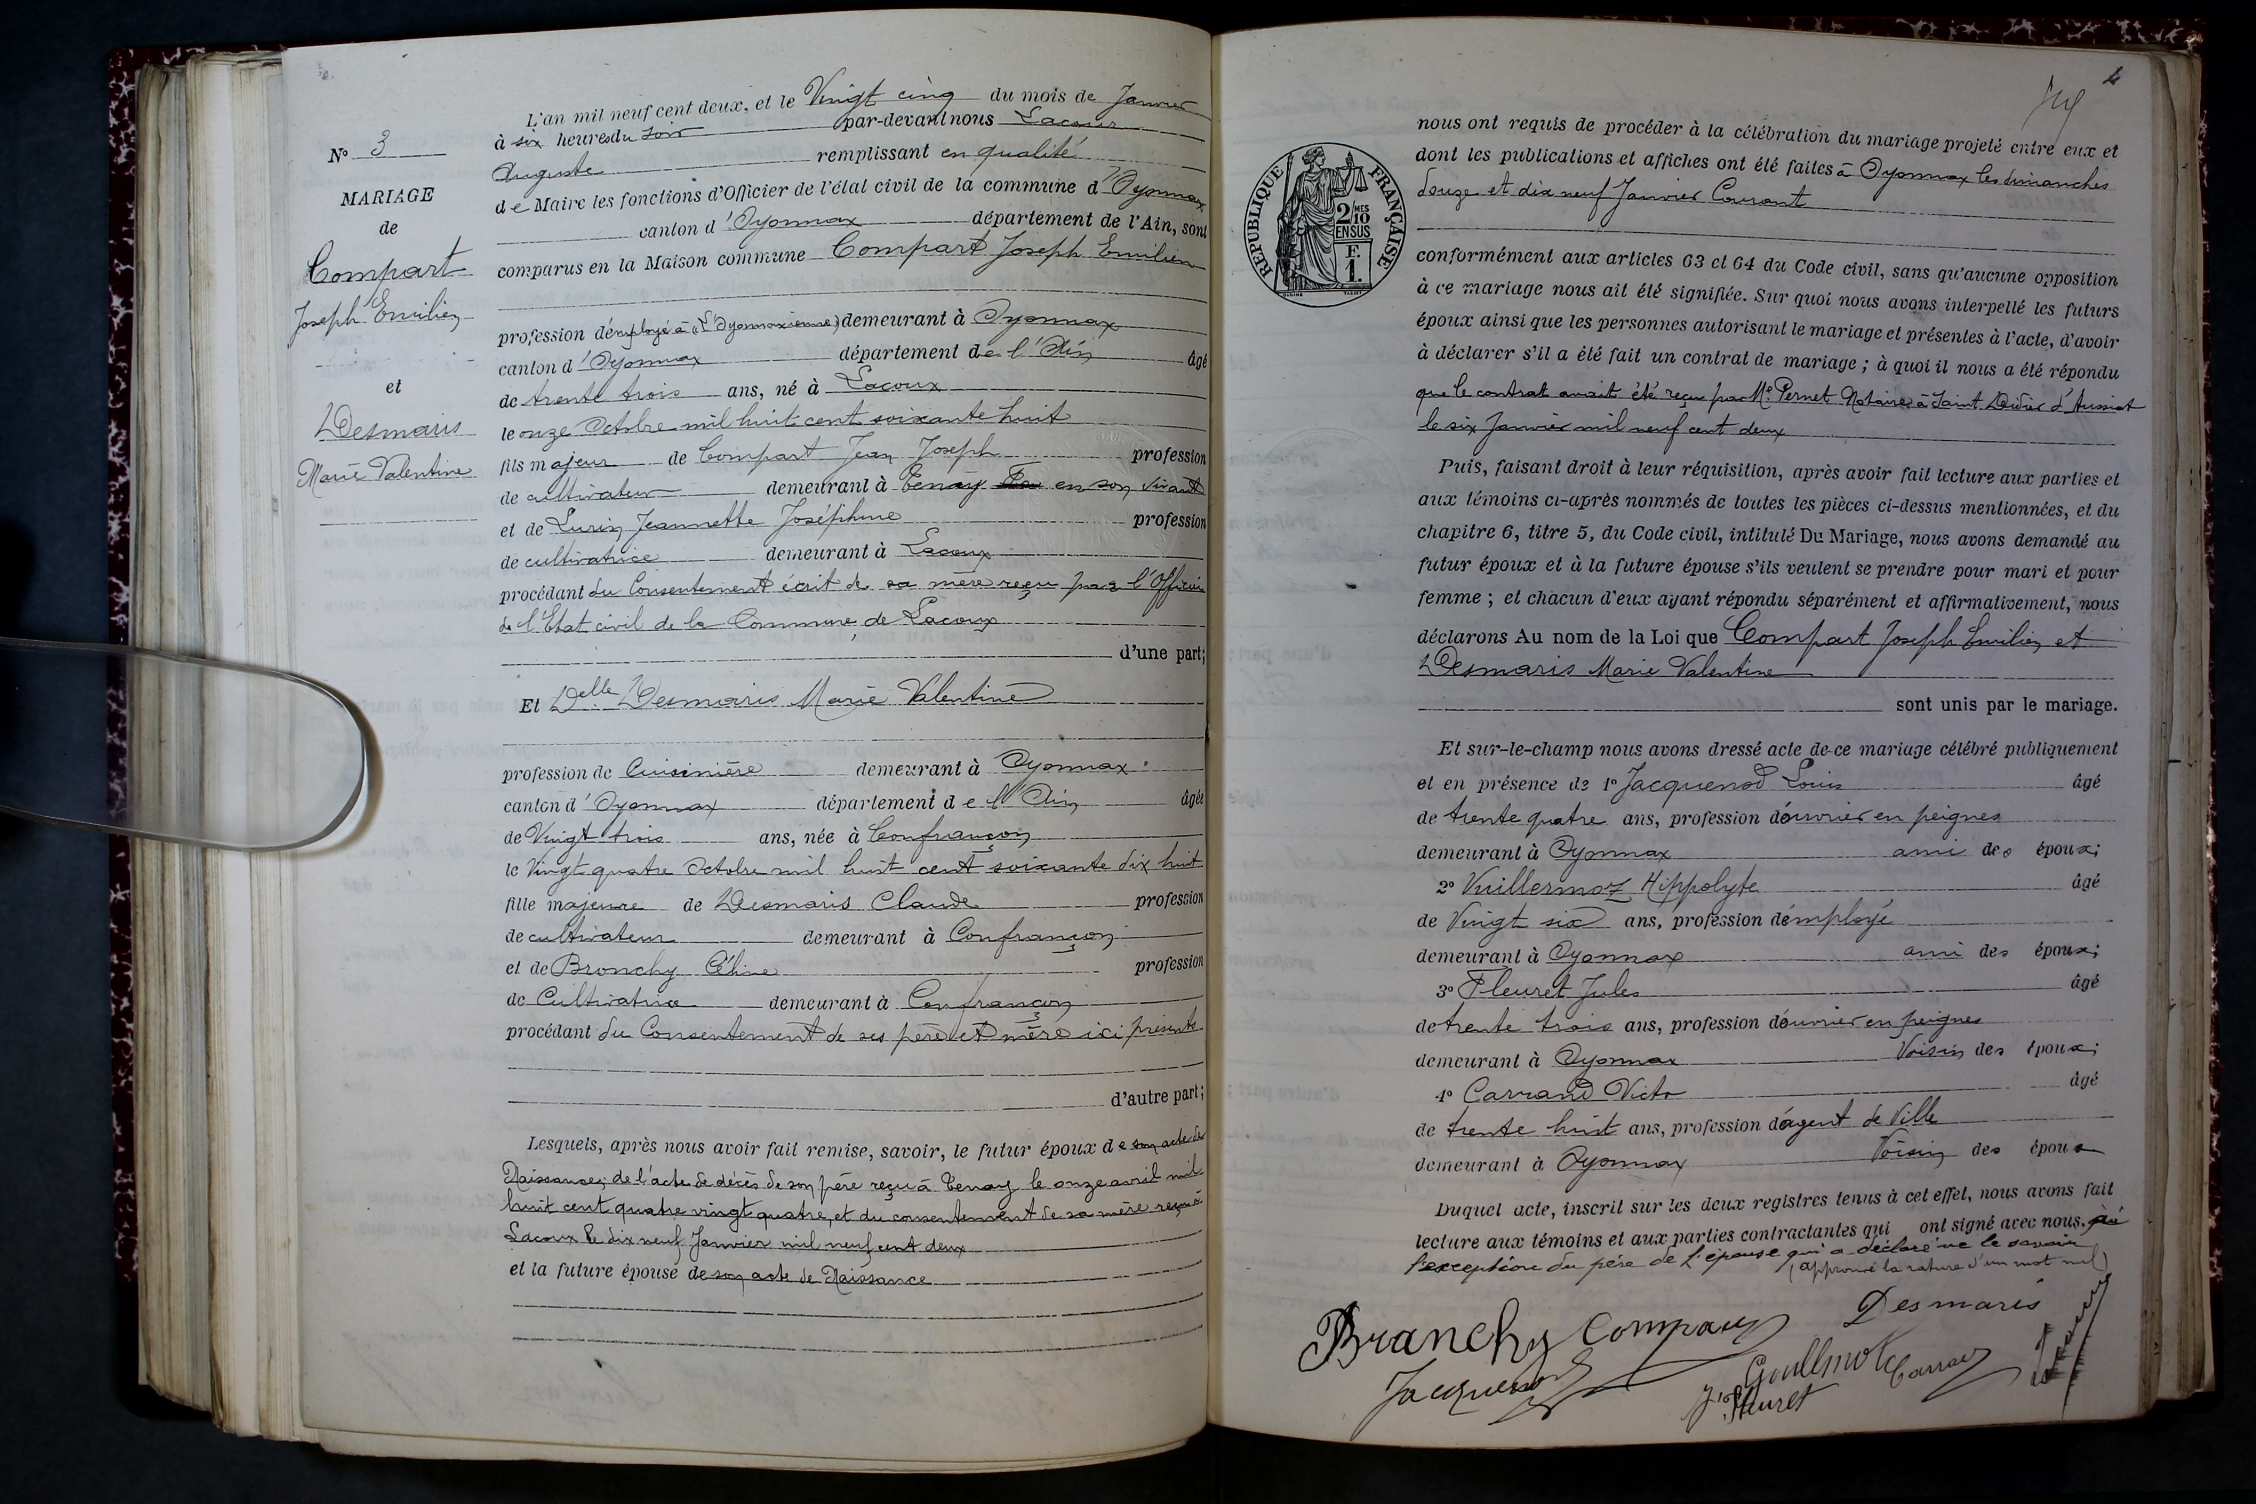 L'an mil neuf cent deux, et le Vingt cinq du mois de Janvier
à six heures du soir par-devant nous Lacour
Auguste remplissant en qualité
de Maire les fonctions d'Officier de l'état civil de la commune d'Oyonnax
canton d'Oyonnax département de l'Ain, sont
comparus en la Maison commune Compart Joseph Emilien
No 3
MARIAGE
de
Compart
Joseph Emilien
et
Desmaris
Marie Valentine
profession d'employé à (L'Oyonnaxienne) demeurant à Oyonnax
canton d'Oyonnax département de l'Ain âgé
de trente trois ans, né à Lacoux
le onze Octobre mil huit cent soixante huit
fils majeur de Compart Jean Joseph profession
de cultivateur demeurant à Tenay en son vivant
et de Lurin Jeannette Joséphine profession
de cultivatrice demeurant à Lacoux
procédant du Consentement écrit de sa mère reçu par l'Officier
de l'Etat civil de la Commune de Lacoux
d'une part;
Et Delle Desmaris Marie Valentine
profession de Cuisinière demeurant à Oyonnax
canton d'Oyonnax département de l'Ain âgée
de Vingt trois ans, née à Confrançon
le Vingt quatre Octobre mil huit cent soixante dix huit
fille majeure de Desmaris Claude profession
de cultivateur demeurant à Confrançon
et de Bronchy Céline profession
de Cultivatrice demeurant à Confrançon
procédant du Consentement de ses père et mère ici présents
d'autre part;
Lesquels, après nous avoir fait remise, savoir, le futur époux de son acte de
Naissance, de l'acte de décès de son père reçu à Tenay le onze avril mil
huit cent quatre vingt quatre, et du consentement de sa mère reçu à
Lacoux le dix neuf Janvier mil neuf cent deux
et la future épouse de son acte de Naissance
4
nous ont requis de procéder à la célébration du mariage projeté entre eux et
dont les publications et affiches ont été faites à Oyonnax les dimanches
douze et dix neuf Janvier Courant
RÉPUBLIQUE FRANÇAISE
2/10 MES
EN SUS
F.
1.
conformément aux articles 63 et 64 du Code civil, sans qu'aucune opposition
à ce mariage nous ait été signifiée. Sur quoi nous avons interpellé les futurs
époux ainsi que les personnes autorisant le mariage et présentes à l'acte, d'avoir
à déclarer s'il a été fait un contrat de mariage ; à quoi il nous a été répondu
que le contrat avait été reçu par Me Pernet Notaire à Saint Didier d'Aussiat
le six Janvier mil neuf cent deux
Puis, faisant droit à leur réquisition, après avoir fait lecture aux parties et
aux témoins ci-après nommés de toutes les pièces ci-dessus mentionnées, et du
chapitre 6, titre 5, du Code civil, intitulé Du Mariage, nous avons demandé au
futur époux et à la future épouse s'ils veulent se prendre pour mari et pour
femme ; et chacun d'eux ayant répondu séparément et affirmativement, nous
déclarons Au nom de la Loi que Compart Joseph Emilien et
Desmaris Marie Valentine
sont unis par le mariage.
Et sur-le-champ nous avons dressé acte de ce mariage célébré publiquement
et en présence de 1o Jacquenod Louis âgé
de trente quatre ans, profession d'ouvrier en peignes
demeurant à Oyonnax ami des époux;
2o Vuillermoz Hippolyte âgé
de Vingt six ans, profession d'employé
demeurant à Oyonnax ami des époux;
3o Fleuret Jules âgé
de trente trois ans, profession d'ouvrier en peignes
demeurant à Oyonnax Voisin des époux;
4o Carrand Victor âgé
de trente huit ans, profession d'agent de Ville
demeurant à Oyonnax Voisin des époux
Duquel acte, inscrit sur les deux registres tenus à cet effet, nous avons fait
lecture aux témoins et aux parties contractantes qui ont signé avec nous, à
l'exception du père de l'épouse qui a déclaré ne le savoir
(approuvé la rature d'un mot nul)
Branchy Compart Desmaris
Jacquenod Carrand
Fleuret